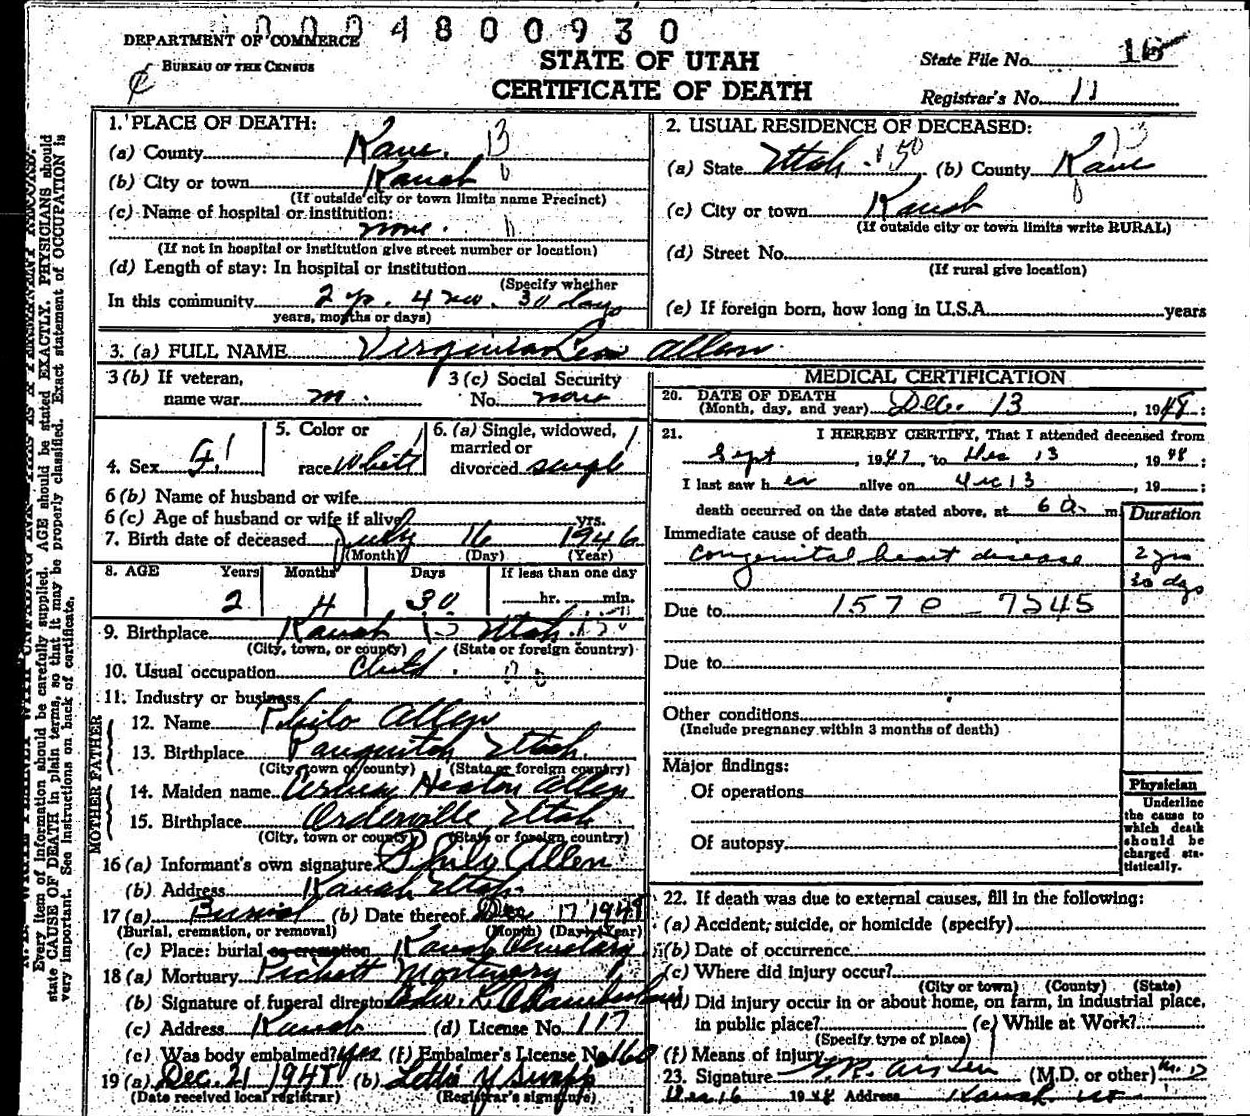 0004800930
DEPARTMENT OF COMMERCE
BUREAU OF THE CENSUS
STATE OF UTAH
CERTIFICATE OF DEATH
State File No. 16
Registrar's No. 11
1. PLACE OF DEATH:
(a) County Kane
(b) City or town Kanab
(If outside city or town limits name Precinct)
(c) Name of hospital or institution:
none.
(If not in hospital or institution give street number or location)
(d) Length of stay: In hospital or institution
(Specify whether
In this community 2 yr. 4 mo. 30 days
years, months or days)
2. USUAL RESIDENCE OF DECEASED:
(a) State Utah (b) County Kane
(c) City or town Kanab
(If outside city or town limits write RURAL)
(d) Street No.
(If rural give location)
(e) If foreign born, how long in U.S.A. years
3. (a) FULL NAME Allen
3 (b) If veteran,
name war
3 (c) Social Security
No. none
4. Sex F.
5. Color or
race White
6. (a) Single, widowed,
married or
divorced single
6 (b) Name of husband or wife
6 (c) Age of husband or wife if alive yrs.
7. Birth date of deceased July 16 1946
(Month) (Day) (Year)
8. AGE Years Months Days If less than one day
2 4 30 hr. min.
9. Birthplace Kanab Utah
(City, town, or county) (State or foreign country)
10. Usual occupation Child.
11. Industry or business
MOTHER FATHER
12. Name Philo Allen
13. Birthplace Panguitch Utah
(City town or county) (State or foreign country)
14. Maiden name Heaton Allen
15. Birthplace Orderville Utah
(City, town or county) (State or foreign country)
16 (a) Informant's own signature Allen
(b) Address Kanab Utah.
17 (a) Burial (b) Date thereof Dec 17 1948
(Burial, cremation, or removal) (Month) (Day) (Year)
(c) Place: burial or cremation Kanab Cemetery
18 (a) Mortuary Mortuary
(b) Signature of funeral director
(c) Address Kanab (d) License No. 117
(e) Was body embalmed? yes (f) Embalmer's License No. 160
19 (a) Dec. 21 1948 (b)
(Date received local registrar) (Registrar's signature)
MEDICAL CERTIFICATION
20. DATE OF DEATH
(Month, day, and year) Dec. 13, 1948:
21. I HEREBY CERTIFY, That I attended deceased from
Sept, 1947, to Dec 13, 1948:
I last saw her alive on Dec 13, 19
death occurred on the date stated above, at 6 a. m.
Duration
Immediate cause of death
Congenital heart disease 2 yrs
Due to 157e - 7545
Due to
Other conditions
(Include pregnancy within 3 months of death)
Major findings:
Of operations
Of autopsy
Physician
Underline
the cause to
which death
should be
charged sta-
tistically.
22. If death was due to external causes, fill in the following:
(a) Accident, suicide, or homicide (specify)
(b) Date of occurrence
(c) Where did injury occur?
(City or town) (County) (State)
(d) Did injury occur in or about home, on farm, in industrial place,
in public place? (e) While at Work?
(Specify type of place)
(f) Means of injury
23. Signature (M.D. or other)
Dec 16 1948 Address Kanab Ut
Every item of information should be carefully supplied. AGE should be stated EXACTLY. PHYSICIANS should
state CAUSE OF DEATH in plain terms, so that it may be properly classified. Exact statement of OCCUPATION is
very important. See instructions on back of certificate.